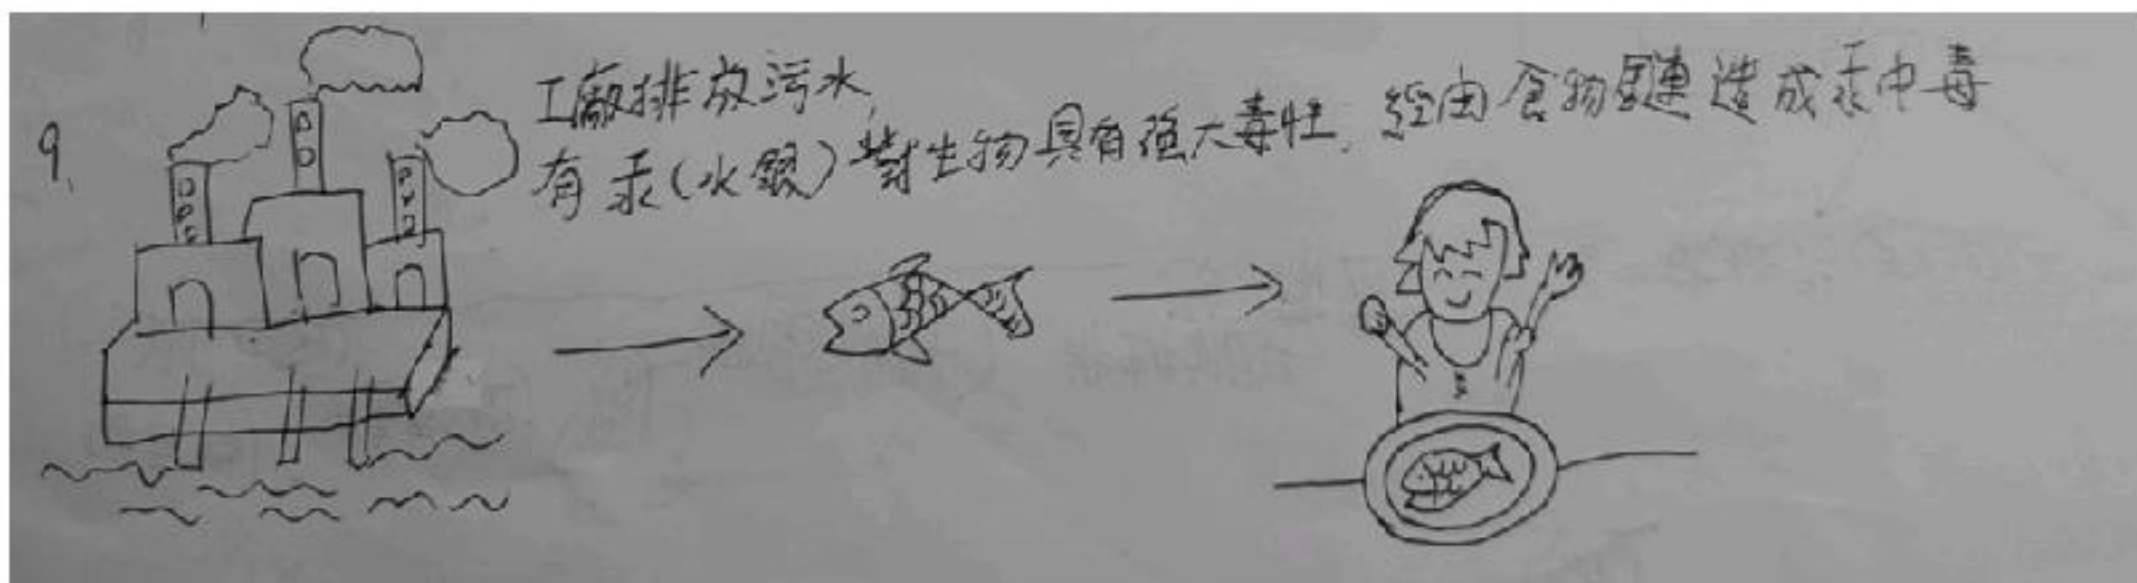 9.
工廠排放污水,
有汞(水銀)對生物具有強大毒性. 經由食物鏈造成汞中毒